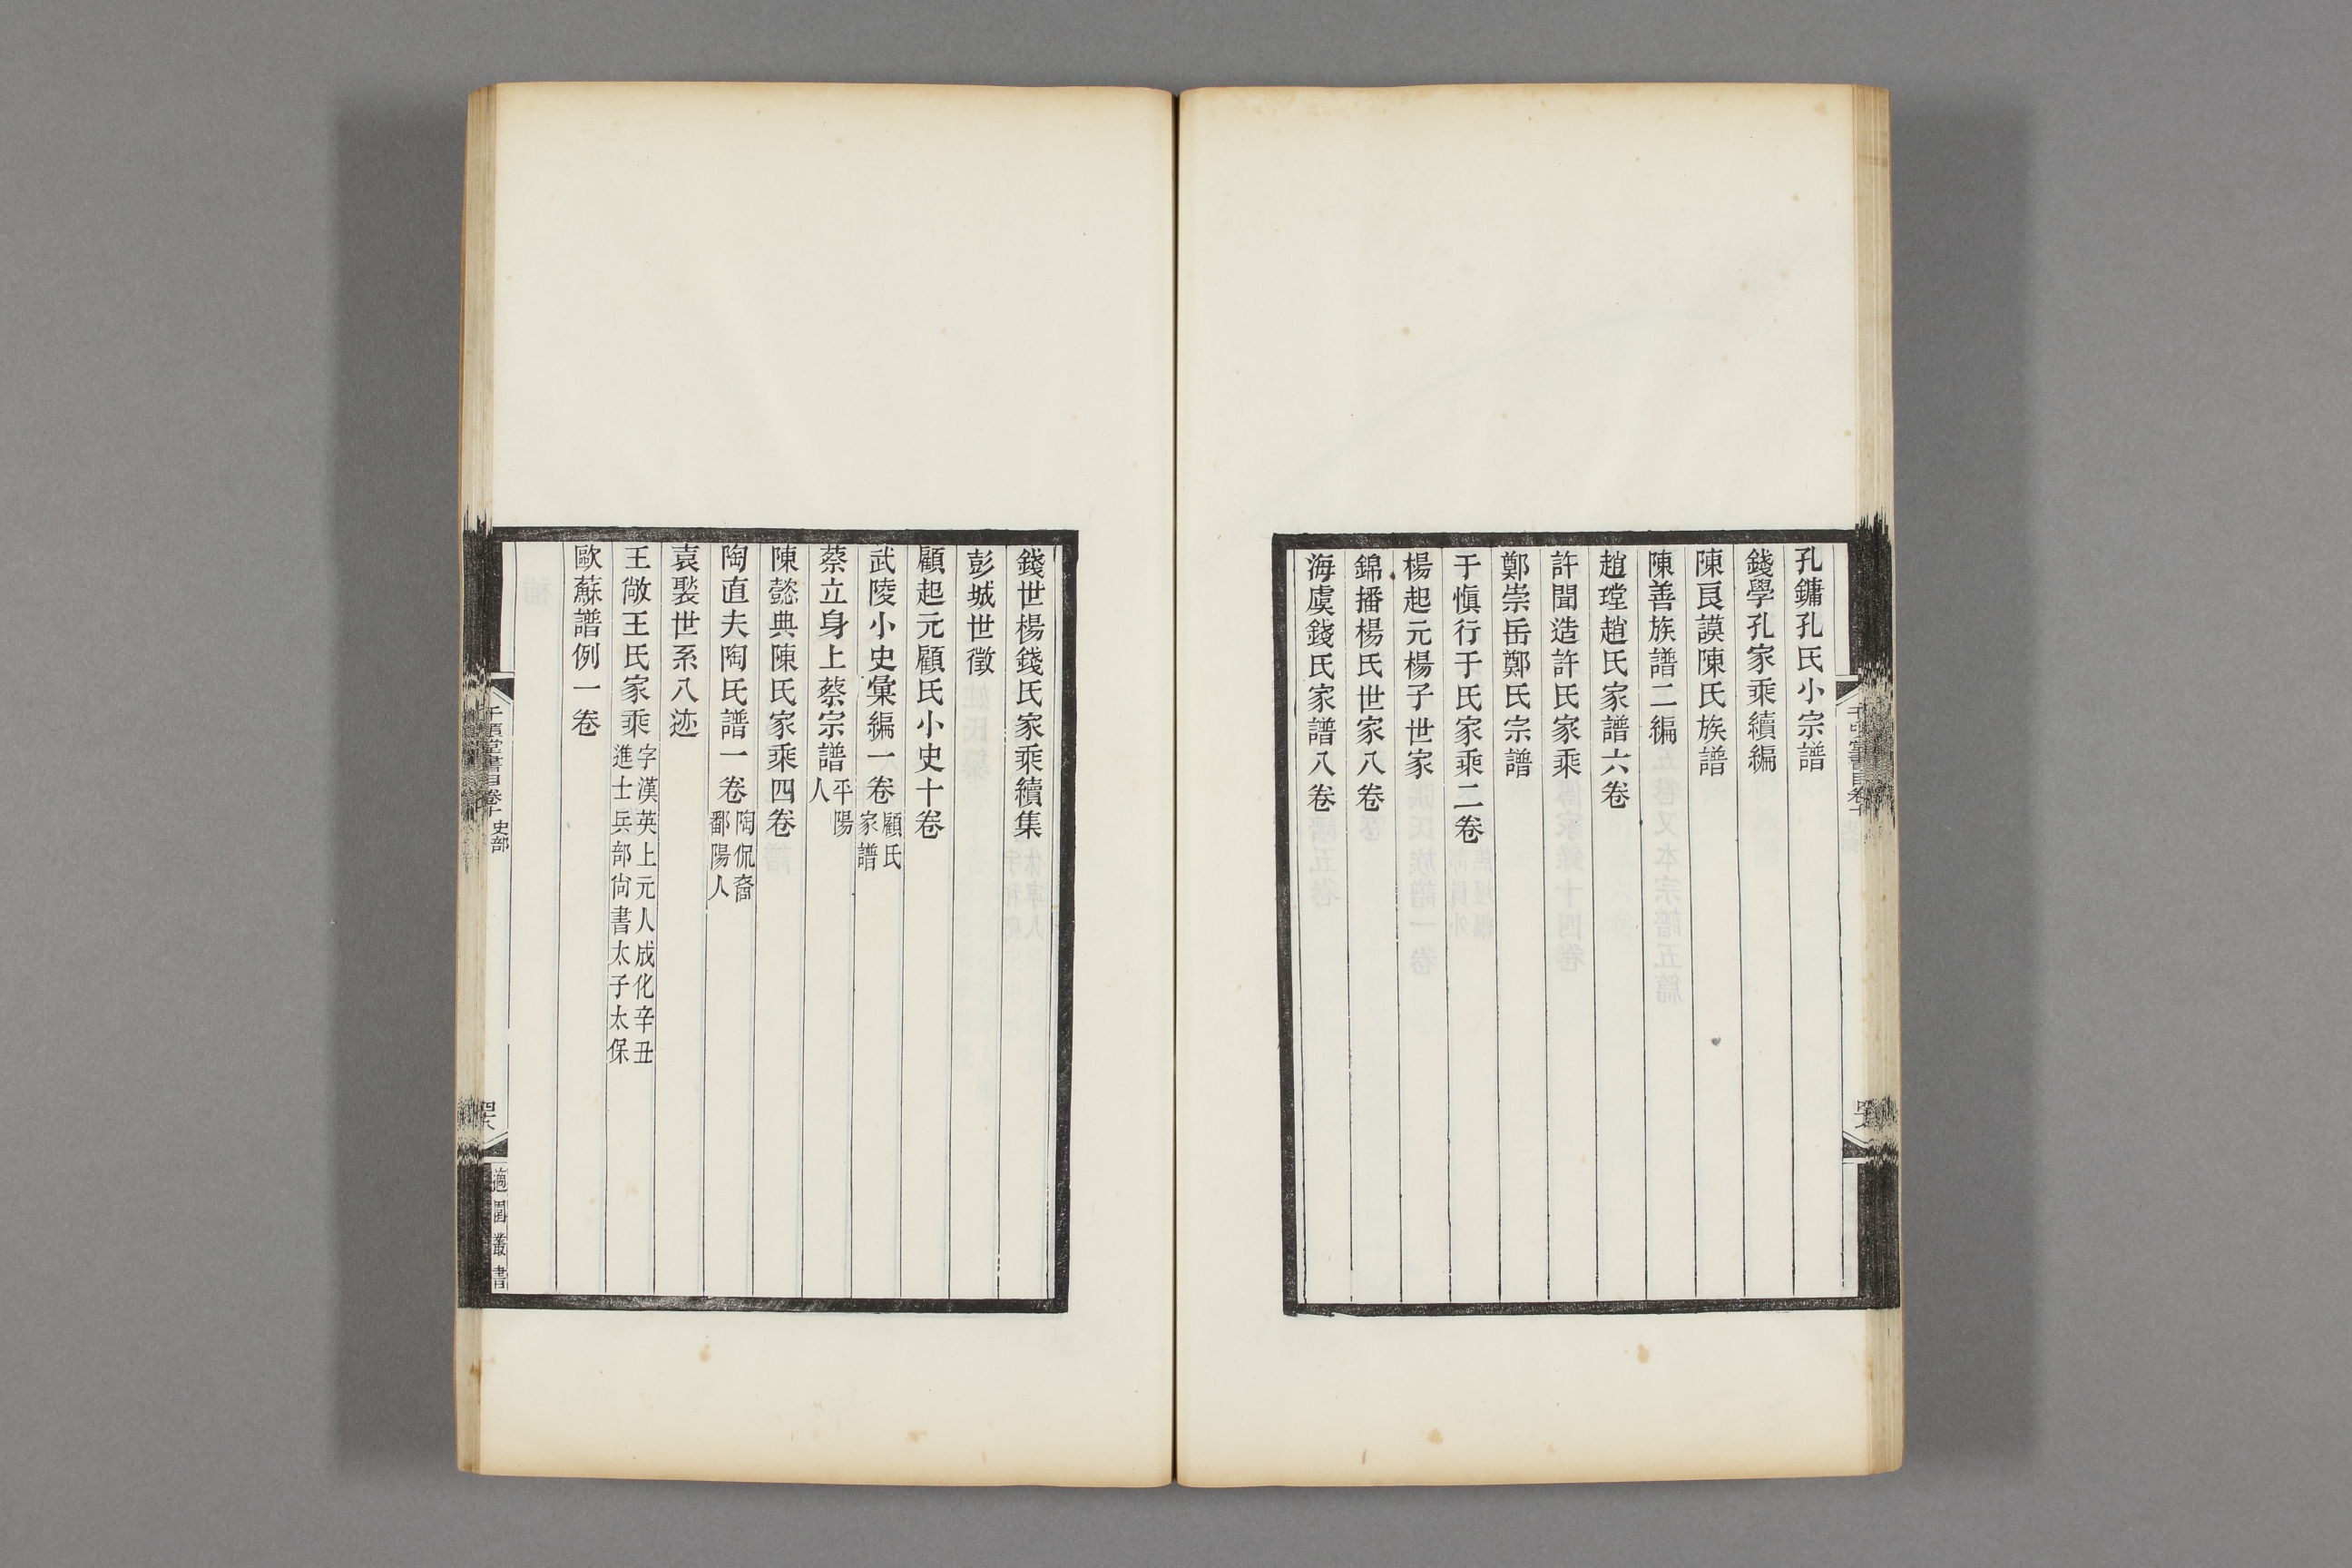 孔鏞孔氏小宗譜
錢學孔家乘續編
陳良謨陳氏族譜
陳善族譜二編
趙瑝趙氏家譜六卷
許聞造許氏家乘
鄭崇岳鄭氏宗譜
于愼行于氏家乘二卷
楊起元楊子世家
錦播楊氏世家八卷
海虞錢氏家譜八卷
錢世楊錢氏家乘續集
彭城世徵
顧起元顧氏小史十卷
武陵小史彙編一卷顧氏家譜
蔡立身上蔡宗譜平陽人
陳懿典陳氏家乘四卷
陶直夫陶氏譜一卷陶侃裔鄱陽人
袁褧世系八迹
王敞王氏家乘字漢英上元人成化辛丑進士兵部尙書太子太保
歐蘇譜例一卷
千頃堂書目卷十 史部
適園叢書